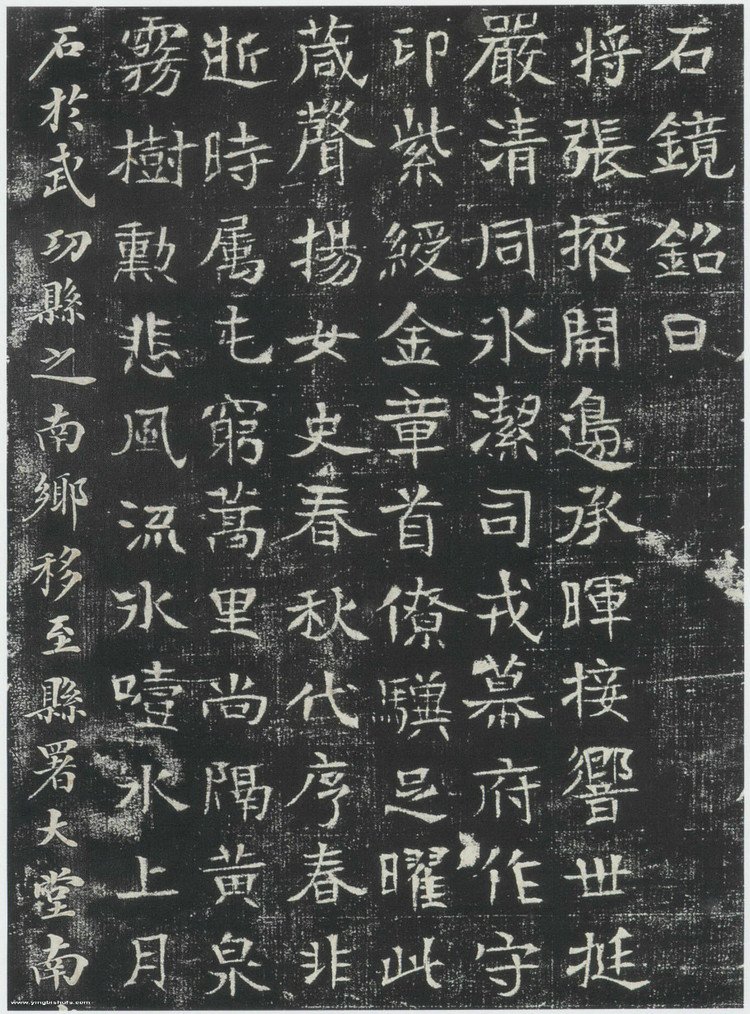 石鏡銘曰
将張掖開邊承暉接響世挺
嚴清同水潔司戎幕府作守
印紫綬金章首僚驥足曜此
葴聲揚女史春秋代序春非
逝時属屯窮蒿里尚隔黃泉
霧樹勳悲風流水噎水上月
石於武功縣之南鄉移至縣署大堂南
www.yingbishufa.com